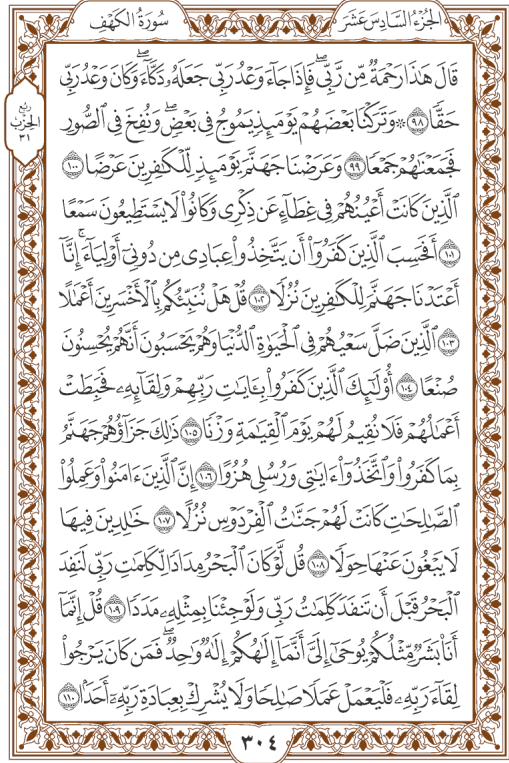 الجُزْءُ السَّادِسَ عَشَرَ
سُورَةُ الكَهْفِ
رُبْع
الحِزْب
٣١
قَالَ هَٰذَا رَحْمَةٌ مِّن رَّبِّي ۖ فَإِذَا جَاءَ وَعْدُ رَبِّي جَعَلَهُۥ دَكَّاءَ ۖ وَكَانَ وَعْدُ رَبِّي
حَقًّا ۝٩٨ ۞ وَتَرَكْنَا بَعْضَهُمْ يَوْمَئِذٍ يَمُوجُ فِي بَعْضٍ ۖ وَنُفِخَ فِي الصُّورِ
فَجَمَعْنَٰهُمْ جَمْعًا ۝٩٩ وَعَرَضْنَا جَهَنَّمَ يَوْمَئِذٍ لِّلْكَٰفِرِينَ عَرْضًا ۝١٠٠
الَّذِينَ كَانَتْ أَعْيُنُهُمْ فِي غِطَاءٍ عَن ذِكْرِي وَكَانُوا۟ لَا يَسْتَطِيعُونَ سَمْعًا
۝١٠١ أَفَحَسِبَ الَّذِينَ كَفَرُوٓا۟ أَن يَتَّخِذُوا۟ عِبَادِي مِن دُونِيٓ أَوْلِيَاءَ ۚ إِنَّآ
أَعْتَدْنَا جَهَنَّمَ لِلْكَٰفِرِينَ نُزُلًا ۝١٠٢ قُلْ هَلْ نُنَبِّئُكُم بِالْأَخْسَرِينَ أَعْمَٰلًا
۝١٠٣ الَّذِينَ ضَلَّ سَعْيُهُمْ فِي الْحَيَوٰةِ الدُّنْيَا وَهُمْ يَحْسَبُونَ أَنَّهُمْ يُحْسِنُونَ
صُنْعًا ۝١٠٤ أُو۟لَٰٓئِكَ الَّذِينَ كَفَرُوا۟ بِـَٔايَٰتِ رَبِّهِمْ وَلِقَآئِهِۦ فَحَبِطَتْ
أَعْمَٰلُهُمْ فَلَا نُقِيمُ لَهُمْ يَوْمَ الْقِيَٰمَةِ وَزْنًا ۝١٠٥ ذَٰلِكَ جَزَآؤُهُمْ جَهَنَّمُ
بِمَا كَفَرُوا۟ وَاتَّخَذُوٓا۟ ءَايَٰتِي وَرُسُلِي هُزُوًا ۝١٠٦ إِنَّ الَّذِينَ ءَامَنُوا۟ وَعَمِلُوا۟
الصَّٰلِحَٰتِ كَانَتْ لَهُمْ جَنَّٰتُ الْفِرْدَوْسِ نُزُلًا ۝١٠٧ خَٰلِدِينَ فِيهَا
لَا يَبْغُونَ عَنْهَا حِوَلًا ۝١٠٨ قُل لَّوْ كَانَ الْبَحْرُ مِدَادًا لِّكَلِمَٰتِ رَبِّي لَنَفِدَ
الْبَحْرُ قَبْلَ أَن تَنفَدَ كَلِمَٰتُ رَبِّي وَلَوْ جِئْنَا بِمِثْلِهِۦ مَدَدًا ۝١٠٩ قُلْ إِنَّمَآ
أَنَا۠ بَشَرٌ مِّثْلُكُمْ يُوحَىٰٓ إِلَيَّ أَنَّمَآ إِلَٰهُكُمْ إِلَٰهٌ وَٰحِدٌ ۖ فَمَن كَانَ يَرْجُوا۟
لِقَآءَ رَبِّهِۦ فَلْيَعْمَلْ عَمَلًا صَٰلِحًا وَلَا يُشْرِكْ بِعِبَادَةِ رَبِّهِۦٓ أَحَدًۢا ۝١١٠
٣٠٤